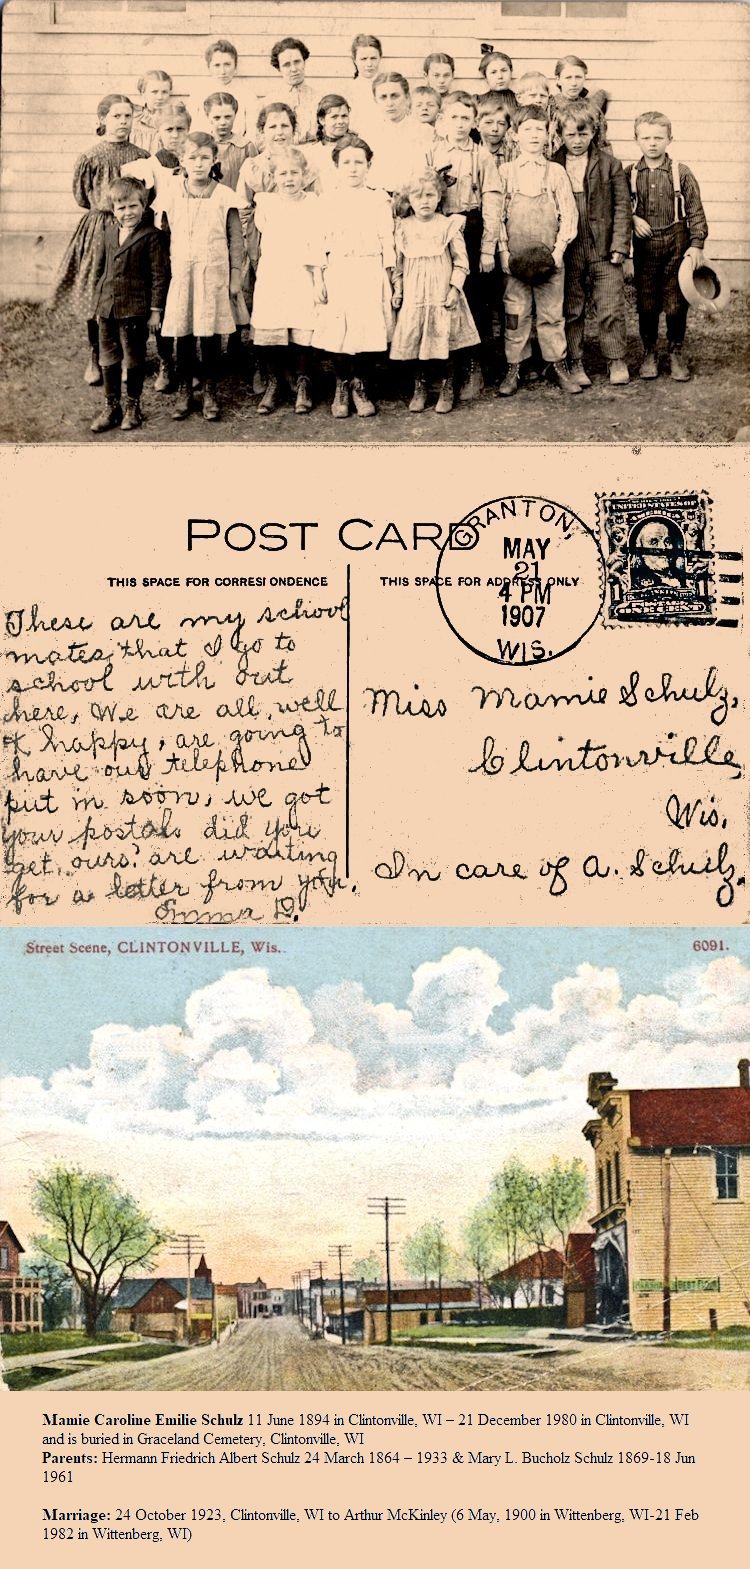 POST CARD
THIS SPACE FOR CORRESPONDENCE
THIS SPACE FOR ADDRESS ONLY
GRANTON,
MAY
21
4 PM
1907
WIS.
UNITED STATES OF
1 1
ONE CENT
These are my school
mates, that I go to
school with out
here, We are all well
& happy, are going to
have our telephone
put in soon, we got
your postals did you
get, ours? are waiting
for a letter from you.
Emma D.
Miss Mamie Schulz,
Clintonville,
Wis.
In care of A. Schulz.
Street Scene, CLINTONVILLE, Wis.
6091.
Mamie Caroline Emilie Schulz 11 June 1894 in Clintonville, WI – 21 December 1980 in Clintonville, WI
and is buried in Graceland Cemetery, Clintonville, WI
Parents: Hermann Friedrich Albert Schulz 24 March 1864 – 1933 & Mary L. Bucholz Schulz 1869-18 Jun
1961
Marriage: 24 October 1923, Clintonville, WI to Arthur McKinley (6 May, 1900 in Wittenberg, WI-21 Feb
1982 in Wittenberg, WI)